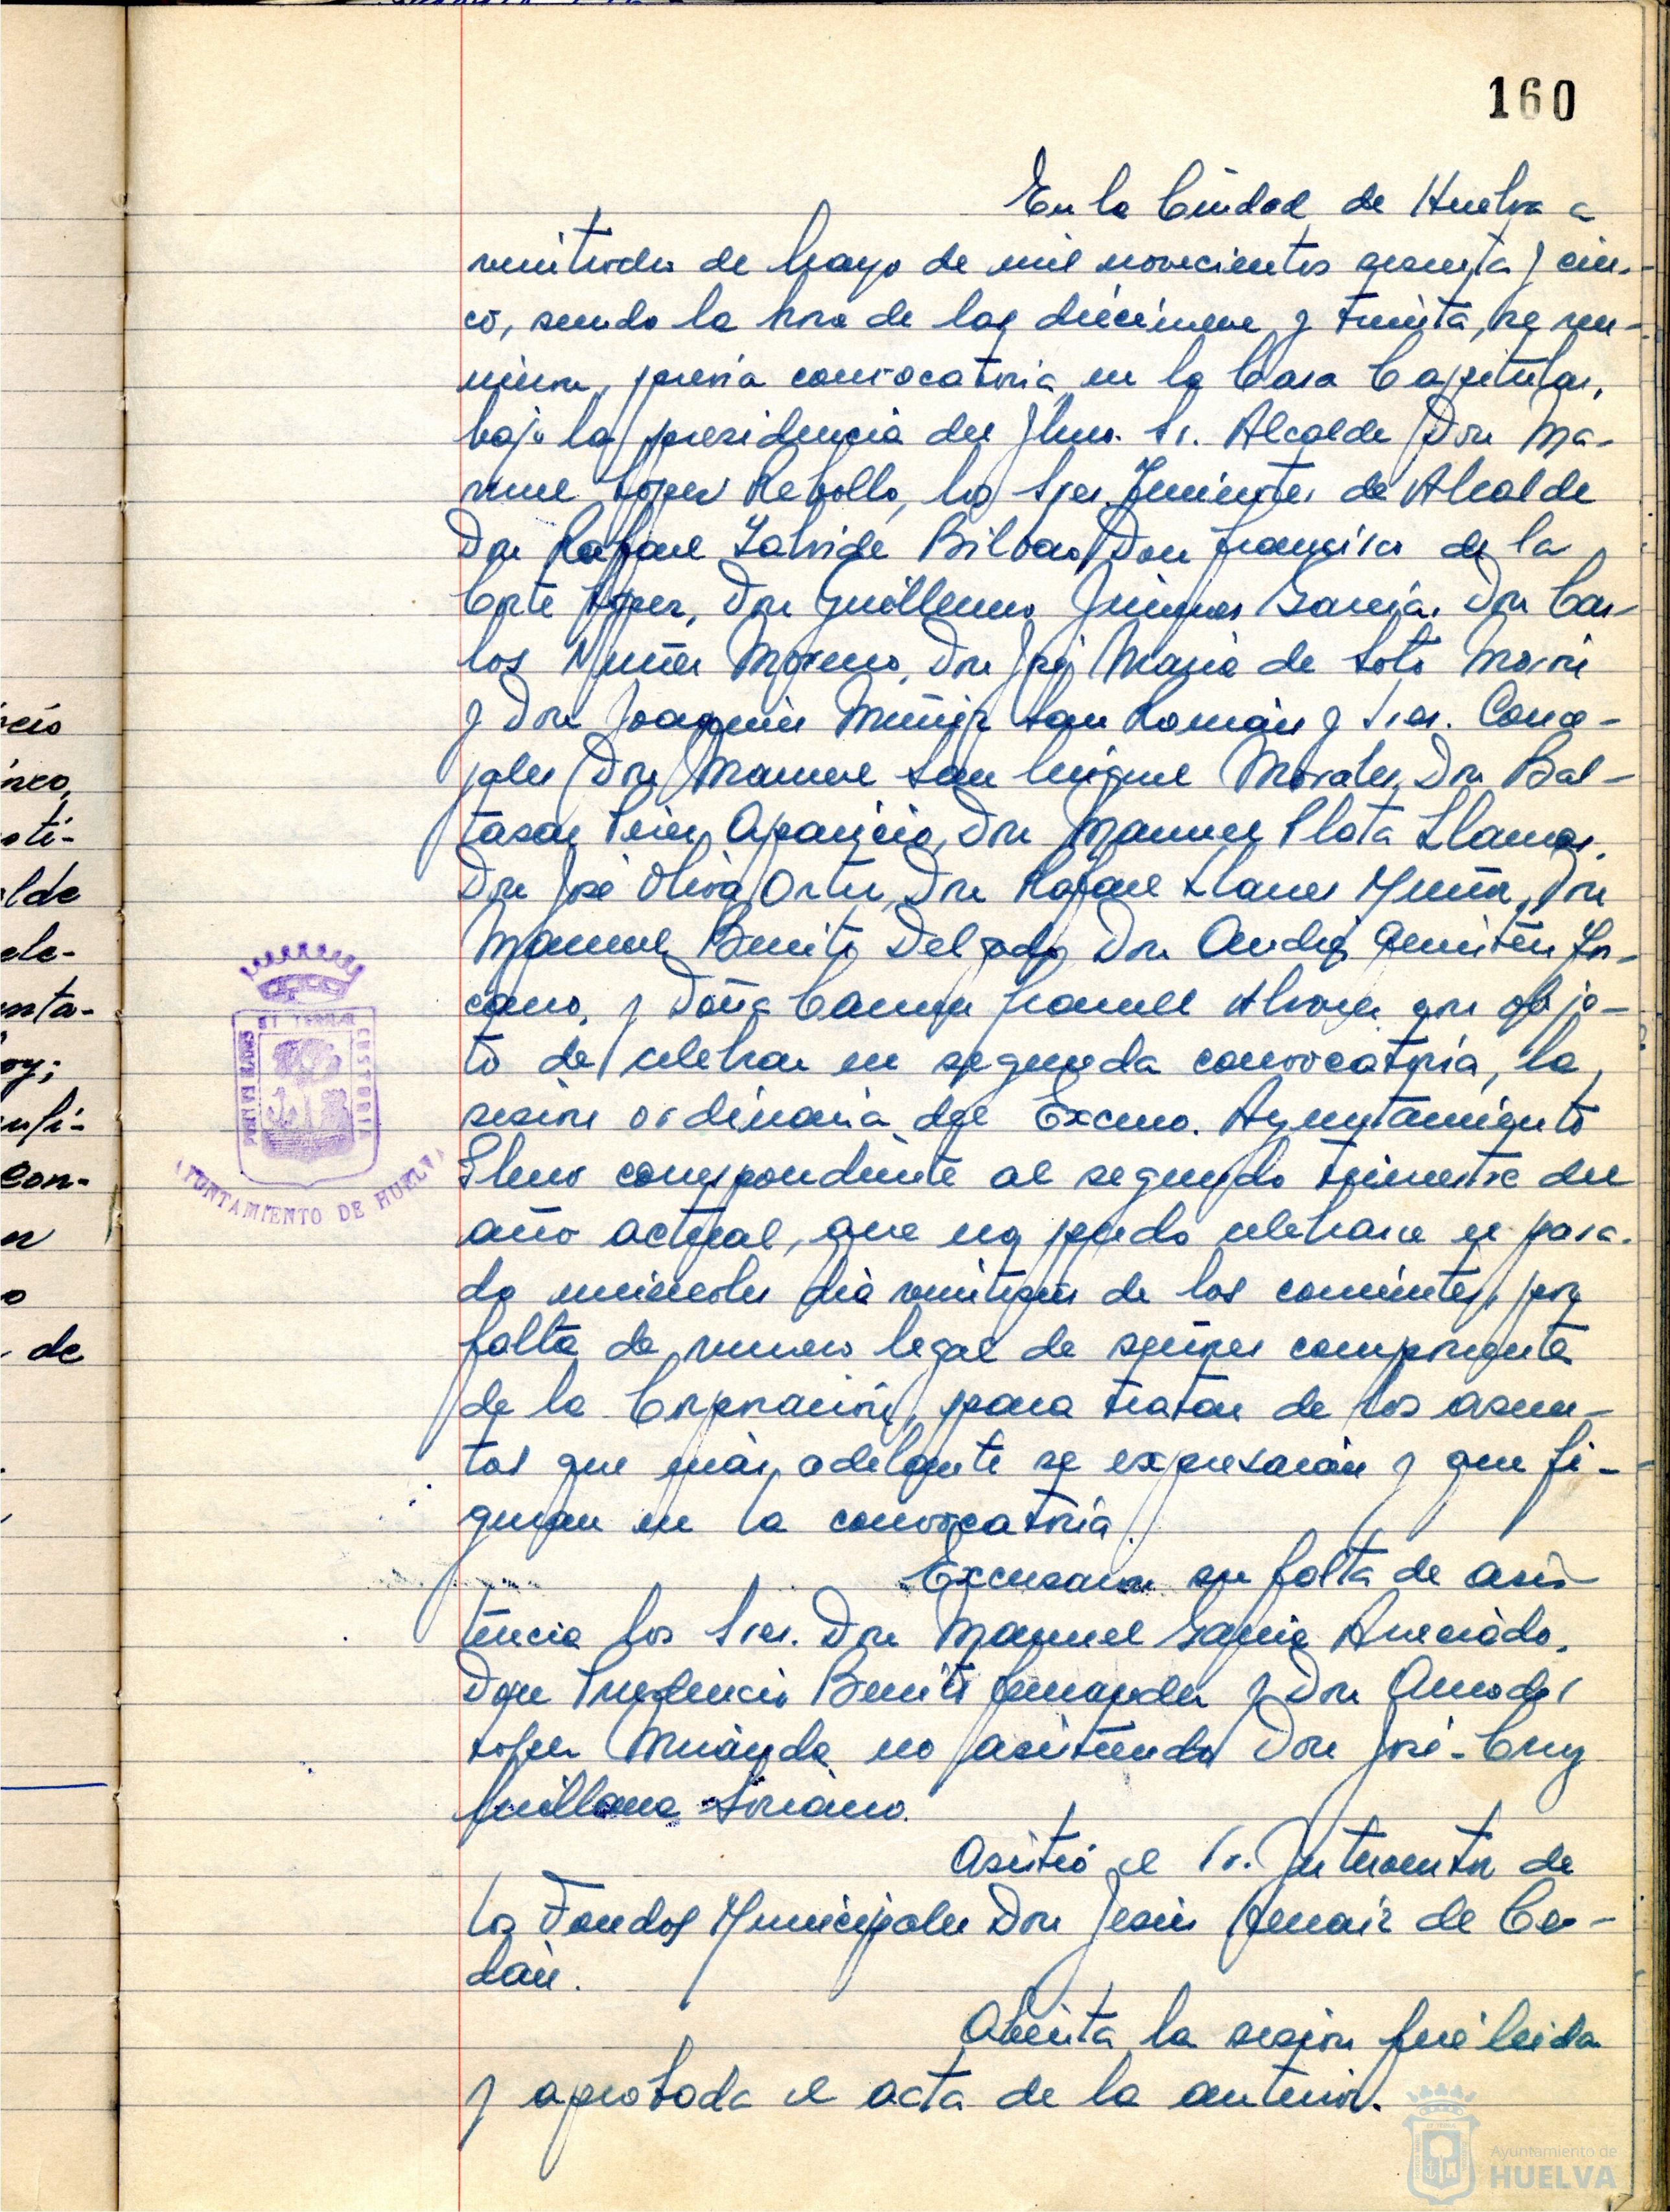 160
En la Ciudad de Huelva a
veintiocho de Mayo de mil novecientos sesenta y cin-
co, siendo la hora de las diecinueve y treinta, se reu-
nieron, previa convocatoria en la Casa Capitular,
bajo la presidencia del Ilmo. Sr. Alcalde Don Ma-
nuel López Rebollo, los Sres. Tenientes de Alcalde
Don Rafael Zalvide Bilbao, Don Francisco de la
Corte López, Don Guillermo Jimenez García, Don Car-
los Nuñez Moreno, Don José María de Soto Morón
y Don Joaquin Muñiz San Román y Sres. Conce-
jales Don Manuel San Miguel Morales, Don Bal-
tasar Pérez Aparicio, Don Manuel Plata Llamas,
Don José Oliva Ortiz, Don Rafael Llanes Nuñez, Don
Manuel Benito Delgado, Don Andrés
y Doña Carmen Alvarez con obje-
to de celebrar en segunda convocatoria, la
sesión ordinaria del Excmo. Ayuntamiento
Pleno correspondiente al segundo trimestre del
año actual, que no pudo celebrarse el pasa-
do miercoles día veintiseis de los corrientes, por
falta de número legal de señores componentes
de la Corporación, para tratar de los asun-
tos que más adelante se expresarán y que fi-
guran en la convocatoria.
Excusaron su falta de asis-
tencia los Sres. Don Manuel
Don Prudencio Benito Fernandez y Don Amador
López Miranda no asistiendo Don José-Cruz
Soriano.
Asistió el Sr. Interventor de
los Fondos Municipales Don Jesús de Ce-
dán.
Abierta la sesión fué leida
y aprobada el acta de la anterior.
AYUNTAMIENTO DE HUELVA
Ayuntamiento de
HUELVA
lde
ele-
nta-
con-
de